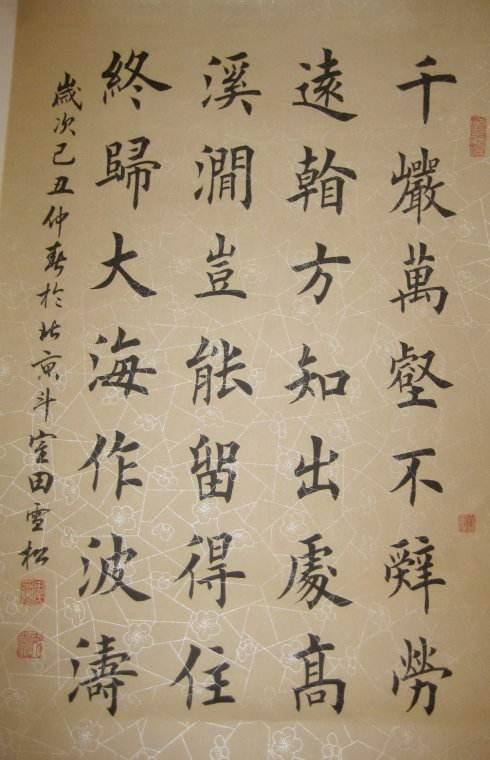 千巗萬壑不辤勞
遠看方知出處髙
溪澗豈能留得住
終歸大海作波濤
歲次己丑仲春於北京斗室田雪松